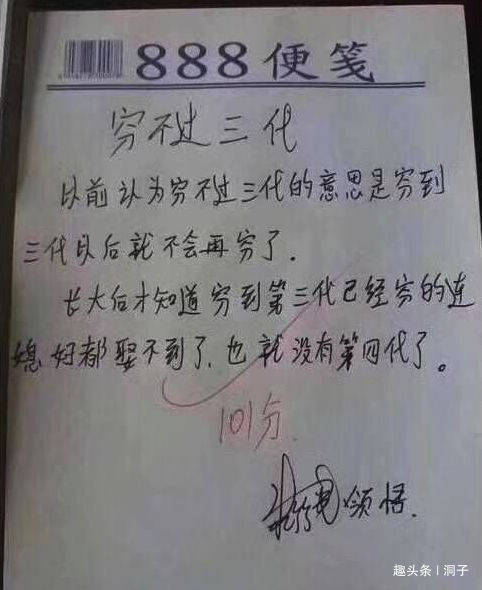 888便笺
穷不过三代
以前认为穷不过三代的意思是穷到
三代以后就不会再穷了.
长大后才知道穷到第三代已经穷的连
媳妇都娶不到了,也就没有第四代了。
101分.
领悟.
趣头条 | 洞子